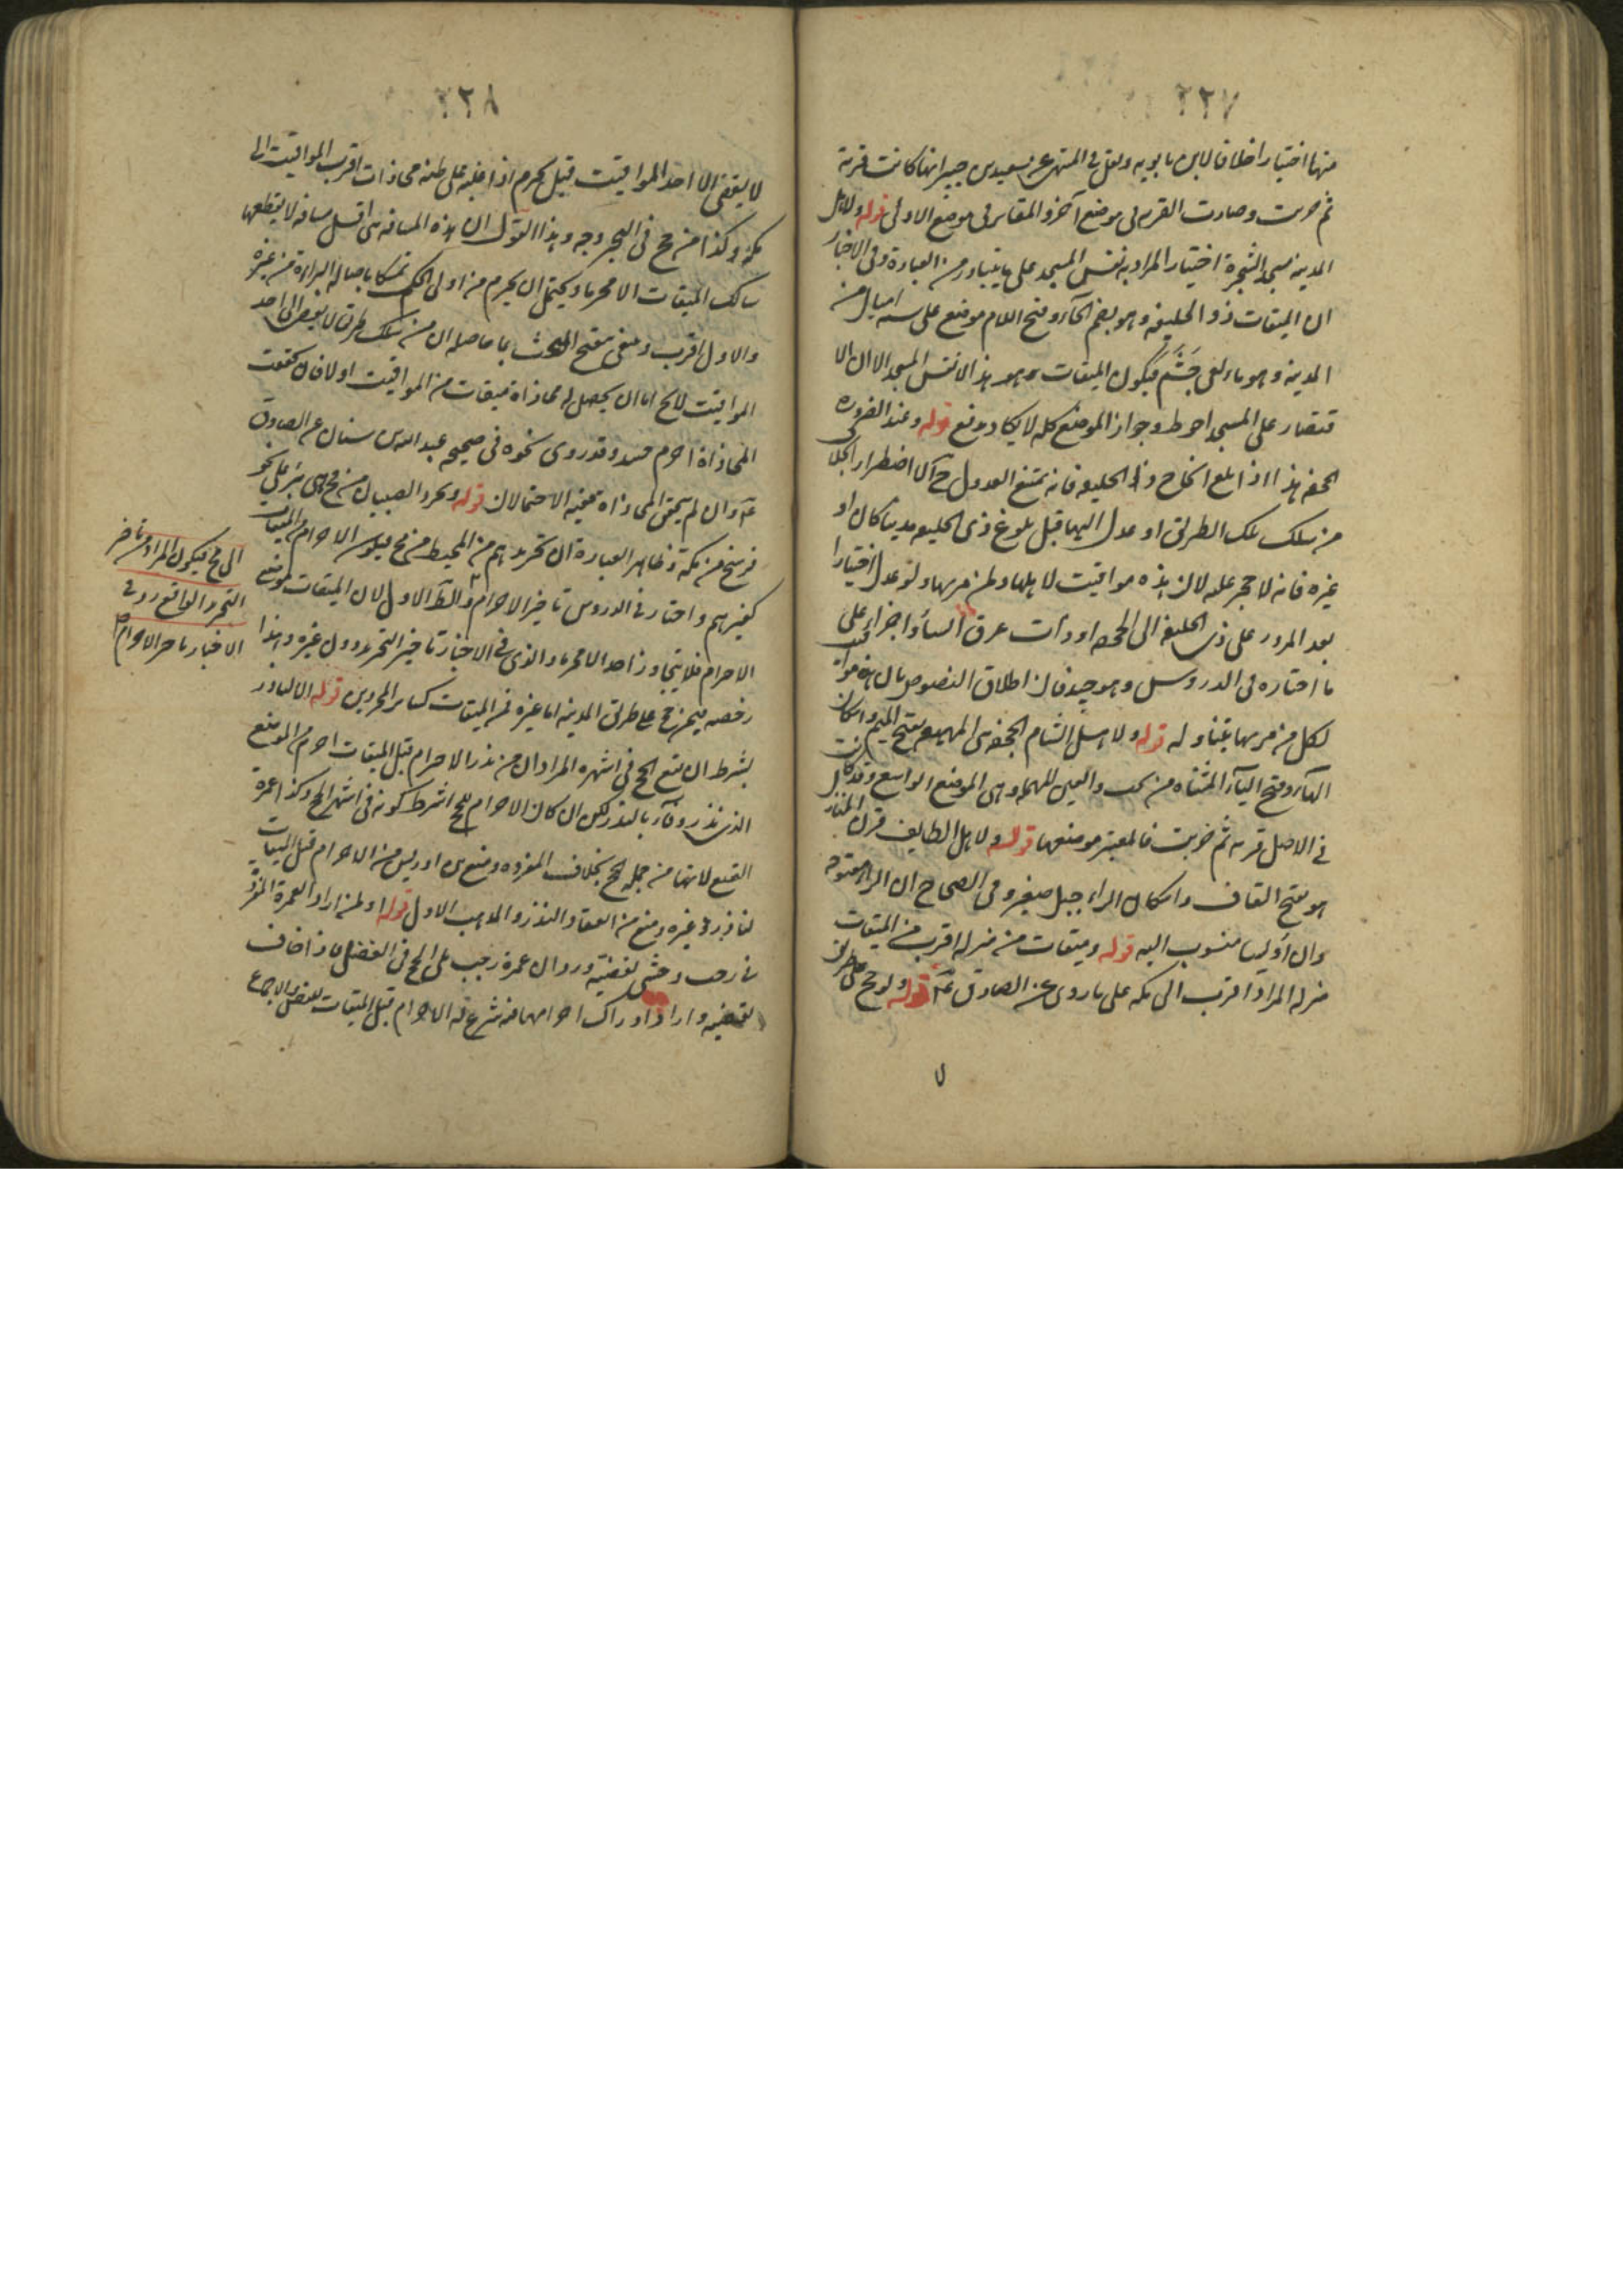 ٢٢٧
منها اختيارا خلافا لابن بابويه ونقل في المنتهى عن سعيد بن جبير انها كانت قرية
ثم خربت وصارت القرية في موضع آخر والمقابر في موضع الاولى قوله ولاهل
المدينة مسجد الشجرة اختيارا المراد به نفس المسجد على ما يتبادر من العبارة وفي الاخبار
ان الميقات ذو الحليفة وهو بضم الحاء وفتح اللام موضع على ستة اميال من
المدينة وهو ماء لبني جشم فيكون الميقات هو هذا لا نفس المسجد الا ان الا
قتصار على المسجد احوط وجواز الموضع كله لا يكاد يدفع قوله وعند الضرورة
الجحفة هذا اذا بلغ الحاج ذا الحليفة فانه يمتنع العدول ح الا اضطرارا بخلا
من سلك تلك الطريق او عدل اليها قبل بلوغ ذي الحليفة مدنيا كان او
غيره فانه لا حجر عليه لان هذه مواقيت لاهلها ولمن مر بها ولو عدل اختيارا
بعد المرور على ذي الحليفة الى الجحفة او ذات عرق اساء واجزاء على
ما اختاره في الدروس وهو جيد فان اطلاق النصوص بان هذه مواقيت
لكل من مر بها يتناوله قوله ولاهل الشام الجحفة هي المهيعة بفتح الميم واسكان
الهاء وفتح الياء المثناة من تحت والعين المهملة وهي الموضع الواسع وقد كانت
في الاصل قرية ثم خربت فالمعتبر موضعها قوله ولاهل الطايف قرن المنازل
هو بفتح القاف واسكان الراء جبل صغير وفي الصحاح ان الراء مفتوحة
وان أويسا منسوب اليه قوله وميقات من منزله اقرب من الميقات
منزله المراد اقرب الى مكة على ما روى عن الصادق ع قوله ولو حج على طريق
لا
٢٢٨
لا يفضي الى احد المواقيت قيل يحرم اذا غلب على ظنه محاذات اقرب المواقيت الى
مكة وكذا من حج في البحر وجه وهذا القول ان هذه المسافة هي اقل مسافة لا يقطعها
سالك الميقات الا محرما ويحتمل ان يحرم من ادنى الحل تمسكا باصالة البراءة من غيره
والاول اقرب وينبغي تنقيح المبحث بما حاصله ان من سلك طريقا لا يفضي الى احد
المواقيت للحج اما ان يحصل له محاذاة ميقات من المواقيت او لا فان تحققت
المحاذاة احرم منه وقد روى نحوه في صحيحه عبد الله بن سنان عن الصادق
ع وان لم يتحقق المحاذاة ففيه الاحتمالان قوله ويجرد الصبيان من فخ وهي بئر على نحو
فرسخ من مكة وظاهر العبارة ان تجريدهم من المخيط من فخ فيكون الاحرام من الميقات
كغيرهم واختار في الدروس تاخير الاحرام والظ الاول لان الميقات موضع
الاحرام فلا يتجاوز احد الا محرما والذي في الاخبار تاخير التجريد دون غيره وهذا
رخصة فيمن حج على طريق المدينة اما غيره فمن الميقات كساير المحرمين قوله الا لناذر
بشرط ان تقع الحج في اشهره المراد ان من نذر الاحرام قبل الميقات احرم من الموضع
الذي نذره وفاء بالنذر لكن ان كان الاحرام للحج اشترط كونه في اشهر الحج وكذا عمرة
التمتع لانها من جملة الحج بخلاف المفردة ومنع ابن ادريس من الاحرام قبل الميقات
لناذر وغيره ومنع من انعقاد النذر والمذهب الاول قوله او لمن اراد العمرة المفردة
في رجب وخشى تقضيه ورد ان عمرة رجب تلي الحج في الفضل فاذا خاف
تقضيه واراد ادراك احرامها فيه شرع له الاحرام قبل الميقات للنص والاجماع
الى فخ فيكون المراد من تاخير
التجريد الواقع روى في
الاخبار تاخير الاحرام